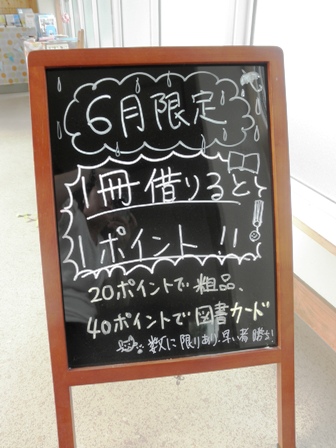 6月限定
1冊借りると
1ポイント!!
20ポイントで粗品、
40ポイントで図書カード
数に限りあり、早い者勝ち!